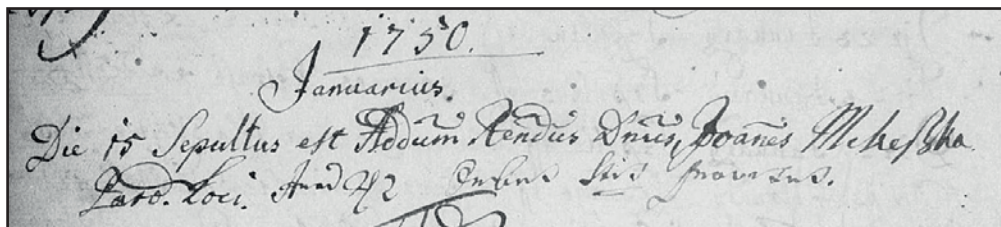 1750.
Januarius.
Die 15 Sepultus est Addum Rendus Dnus, Joanes Mekeßka
Paro. Loci. Anno 42